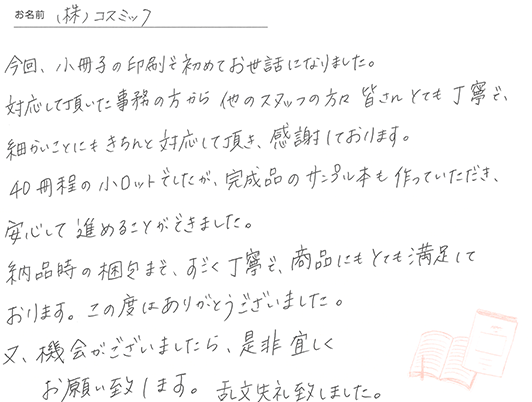 お名前 (株)コスミック
今回、小冊子の印刷で初めてお世話になりました。
対応して頂いた事務の方から他のスタッフの方々皆さんとても丁寧で、
細かいことにもきちんと対応して頂き、感謝しております。
40冊程の小ロットでしたが、完成品のサンプル本も作っていただき、
安心して進めることができました。
納品時の梱包まで、すごく丁寧で、商品にもとても満足して
おります。この度はありがとうございました。
又、機会がございましたら、是非宜しく
お願い致します。乱文失礼致しました。